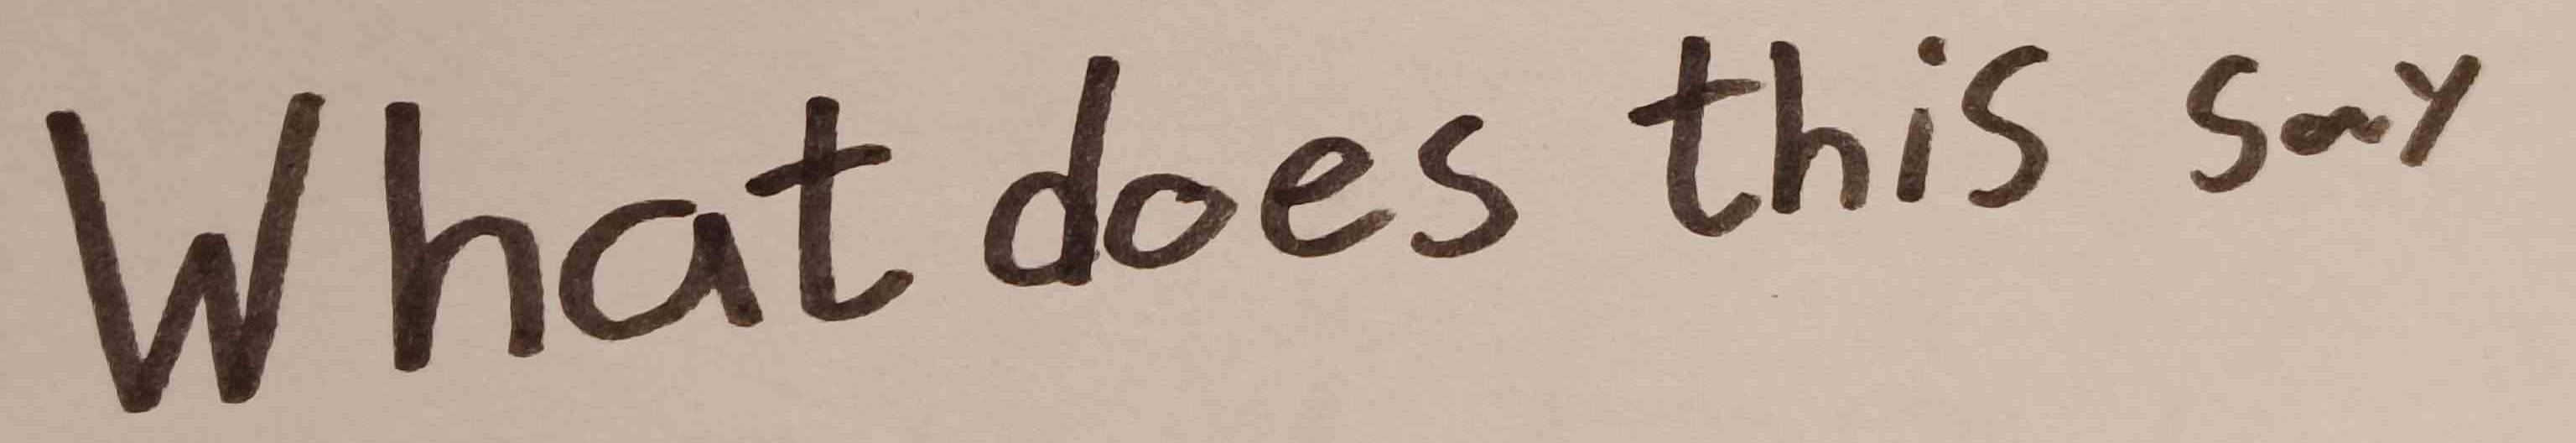 What does this say